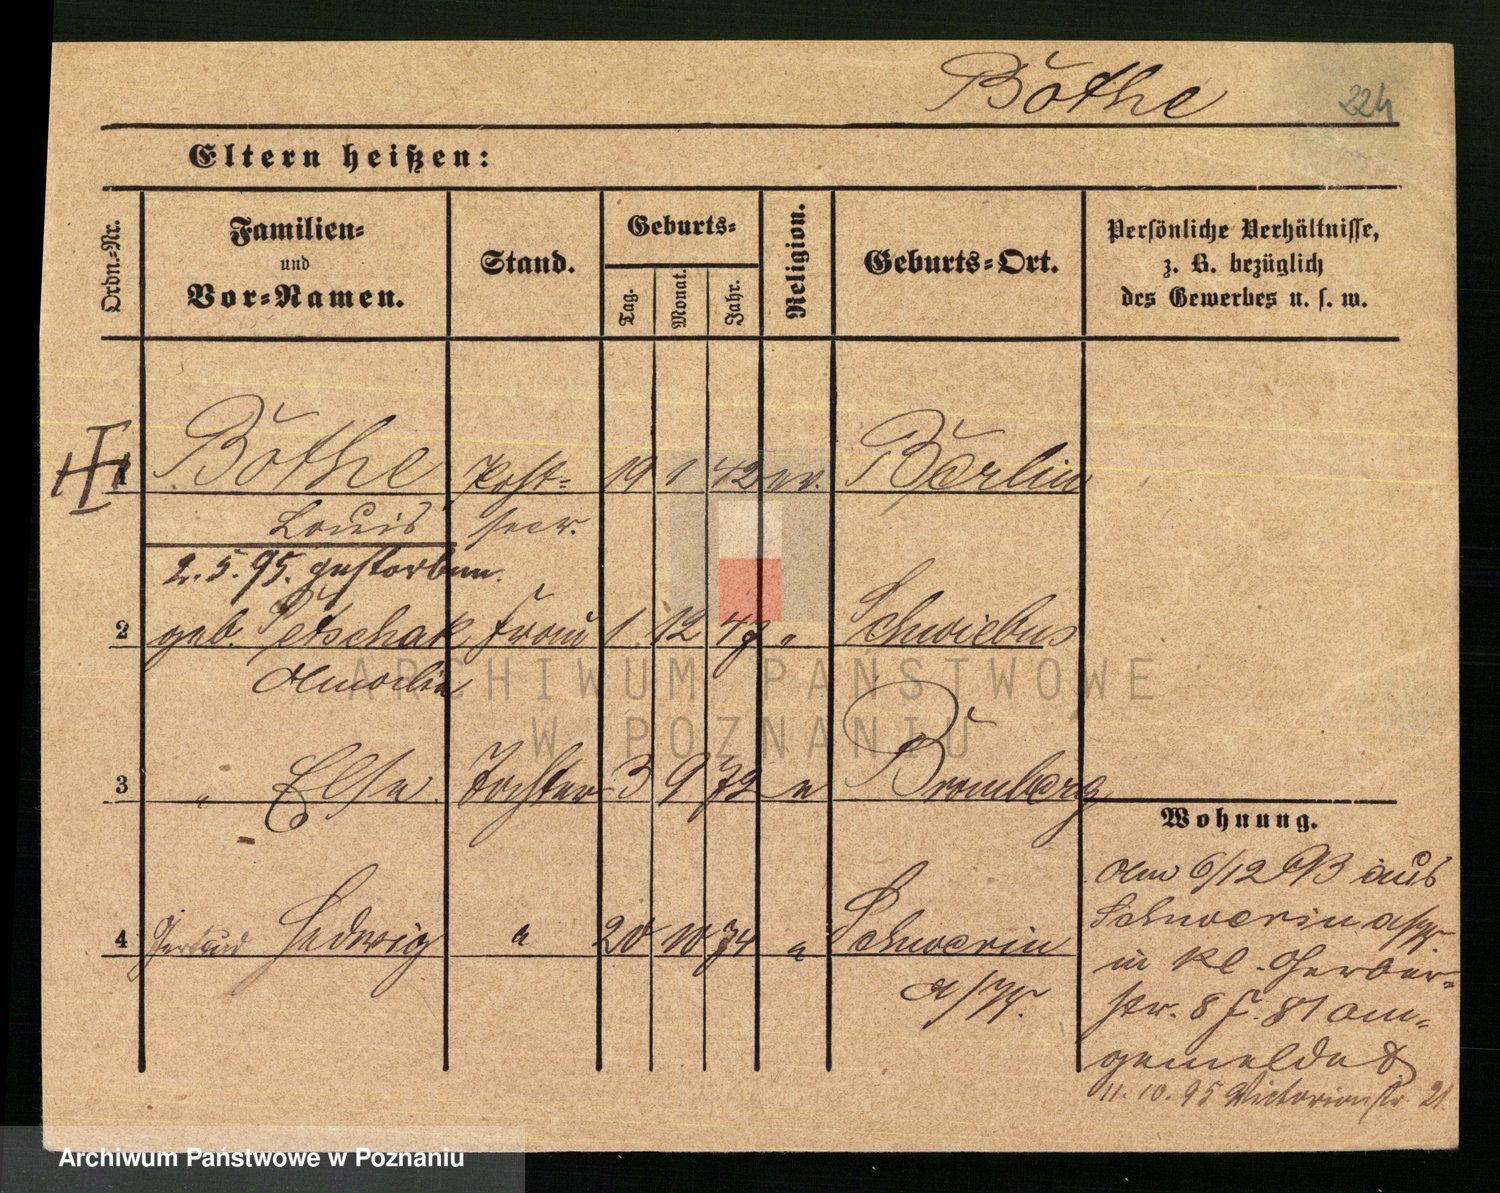 Böthe 224
Eltern heißen:
Ordn.-Nr.
Familien-
und
Vor-Namen.
Stand.
Geburts-
Tag.
Monat.
Jahr.
Religion.
Geburts-Ort.
Persönliche Verhältnisse,
z. B. bezüglich
des Gewerbes u. s. w.
1 Böthe Post- 19 1 42 ev. Berlin
Louis secr.
2.5.95. gestorben.
2 geb. Petschak Frau 1 12 47 " Schwiebus
Amalie
3 " Else Tochter 3 9 72 " Bromberg
4 Gertrud Hedwig " 20 10 74 " Schwerin
a/W.
Wohnung.
Am 6/12 93 aus
Schwerin a/W.
in Kl. Gerber-
str. 8 f. 81 an-
gemeldet
11.10.95 Victoriastr. 21.
ARCHIWUM PAŃSTWOWE
W POZNANIU
Archiwum Państwowe w Poznaniu